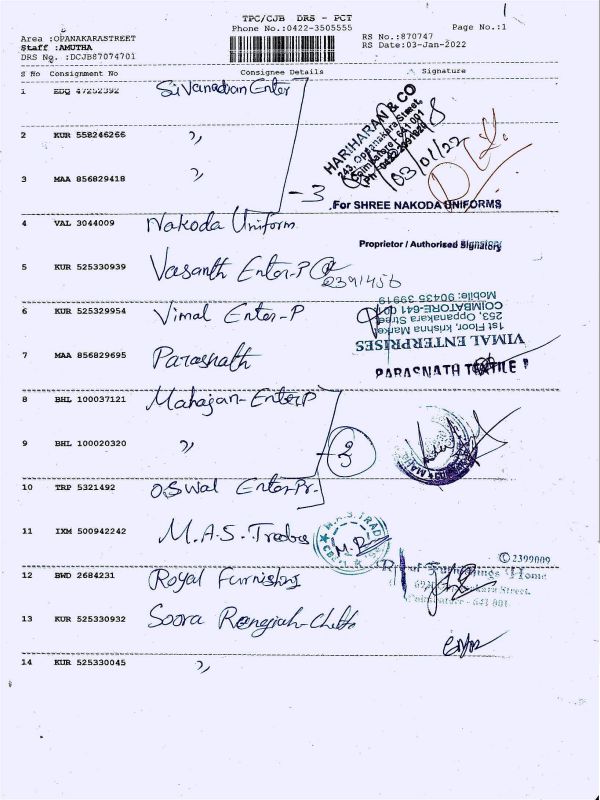 TPC/CJB DRS - PCT
Phone No.:0422-3505555
Page No.:1
Area :OPANAKARASTREET
Staff :AMUTHA
DRS No. :DCJB87074701
RS No.:870747
RS Date:03-Jan-2022
S No Consignment No Consignee Details Signature
1 EDQ 47252392
2 KUR 558246266 ,,
HARIHARAN & CO
243, Oppanakara Street,
Coimbatore - 641 001
03/01/22
3 MAA 856829418 ,,
-3
For SHREE NAKODA UNIFORMS
4 VAL 3044009 Nakoda Uniform
Proprietor / Authorised Signatory
5 KUR 525330939 Vasanth Enter-P
2391456
6 KUR 525329954 Vimal Enter-P
VIMAL ENTERPRISES
1st Floor, krishna Market,
253, Oppanakara Street,
COIMBATORE-641 001
Mobile: 90435 39919
7 MAA 856829695 Parasnath
PARASNATH
8 BHL 100037121 Mahajan-EnterP
9 BHL 100020320 ,,
-3
10 TRP 5321492 Oswal Enter-Pr
11 IXM 500942242 M.A.S. Trades
2399009
12 BWD 2684231 Royal Furnishing
Coimbatore - 641 001
13 KUR 525330932 Soora Rangiah-Chetty
14 KUR 525330045 ,,